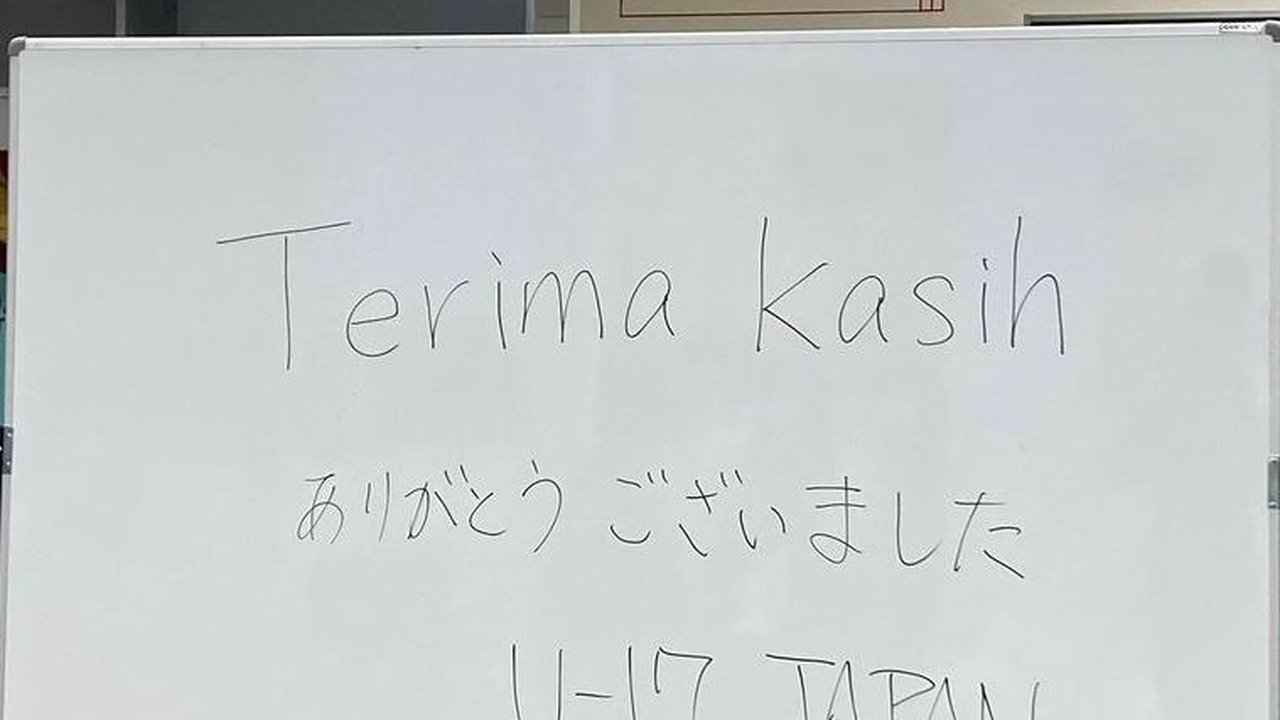 Terima kasih
ありがとう ございました
U-17 JAPAN